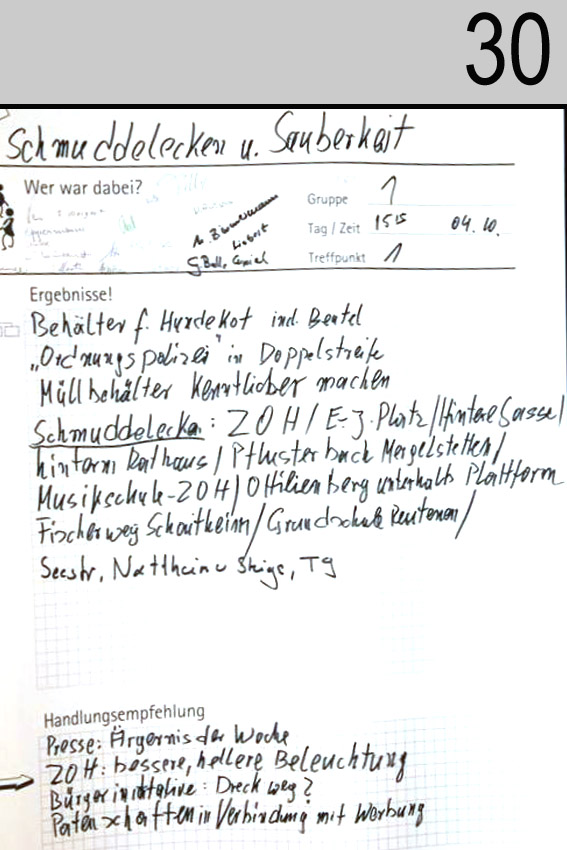 30
Schmuddelecken u. Sauberkeit
Wer war dabei?
Gruppe 1
Tag / Zeit 15 15 04. 10.
Treffpunkt 1
Ergebnisse!
Behälter f. Hundekot incl. Beutel
„Ordnungspolizei" in Doppelstreife
Müllbehälter kenntlicher machen
Schmuddelecken: ZOH / E-J. Platz / Hintere Gasse /
hinterm Rathaus / Pflusterbach Mergelstetten /
Musikschule-ZOH / Ottilienberg unterhalb Plattform
Fischerweg Schnaitheim / Grundschule Reutenen /
Seestr., Nattheimer Steige, TG
Handlungsempfehlung
Presse: Ärgernis der Woche
ZOH: bessere, hellere Beleuchtung
Bürgerinitiative: Dreck weg?
Patenschaften in Verbindung mit Werbung